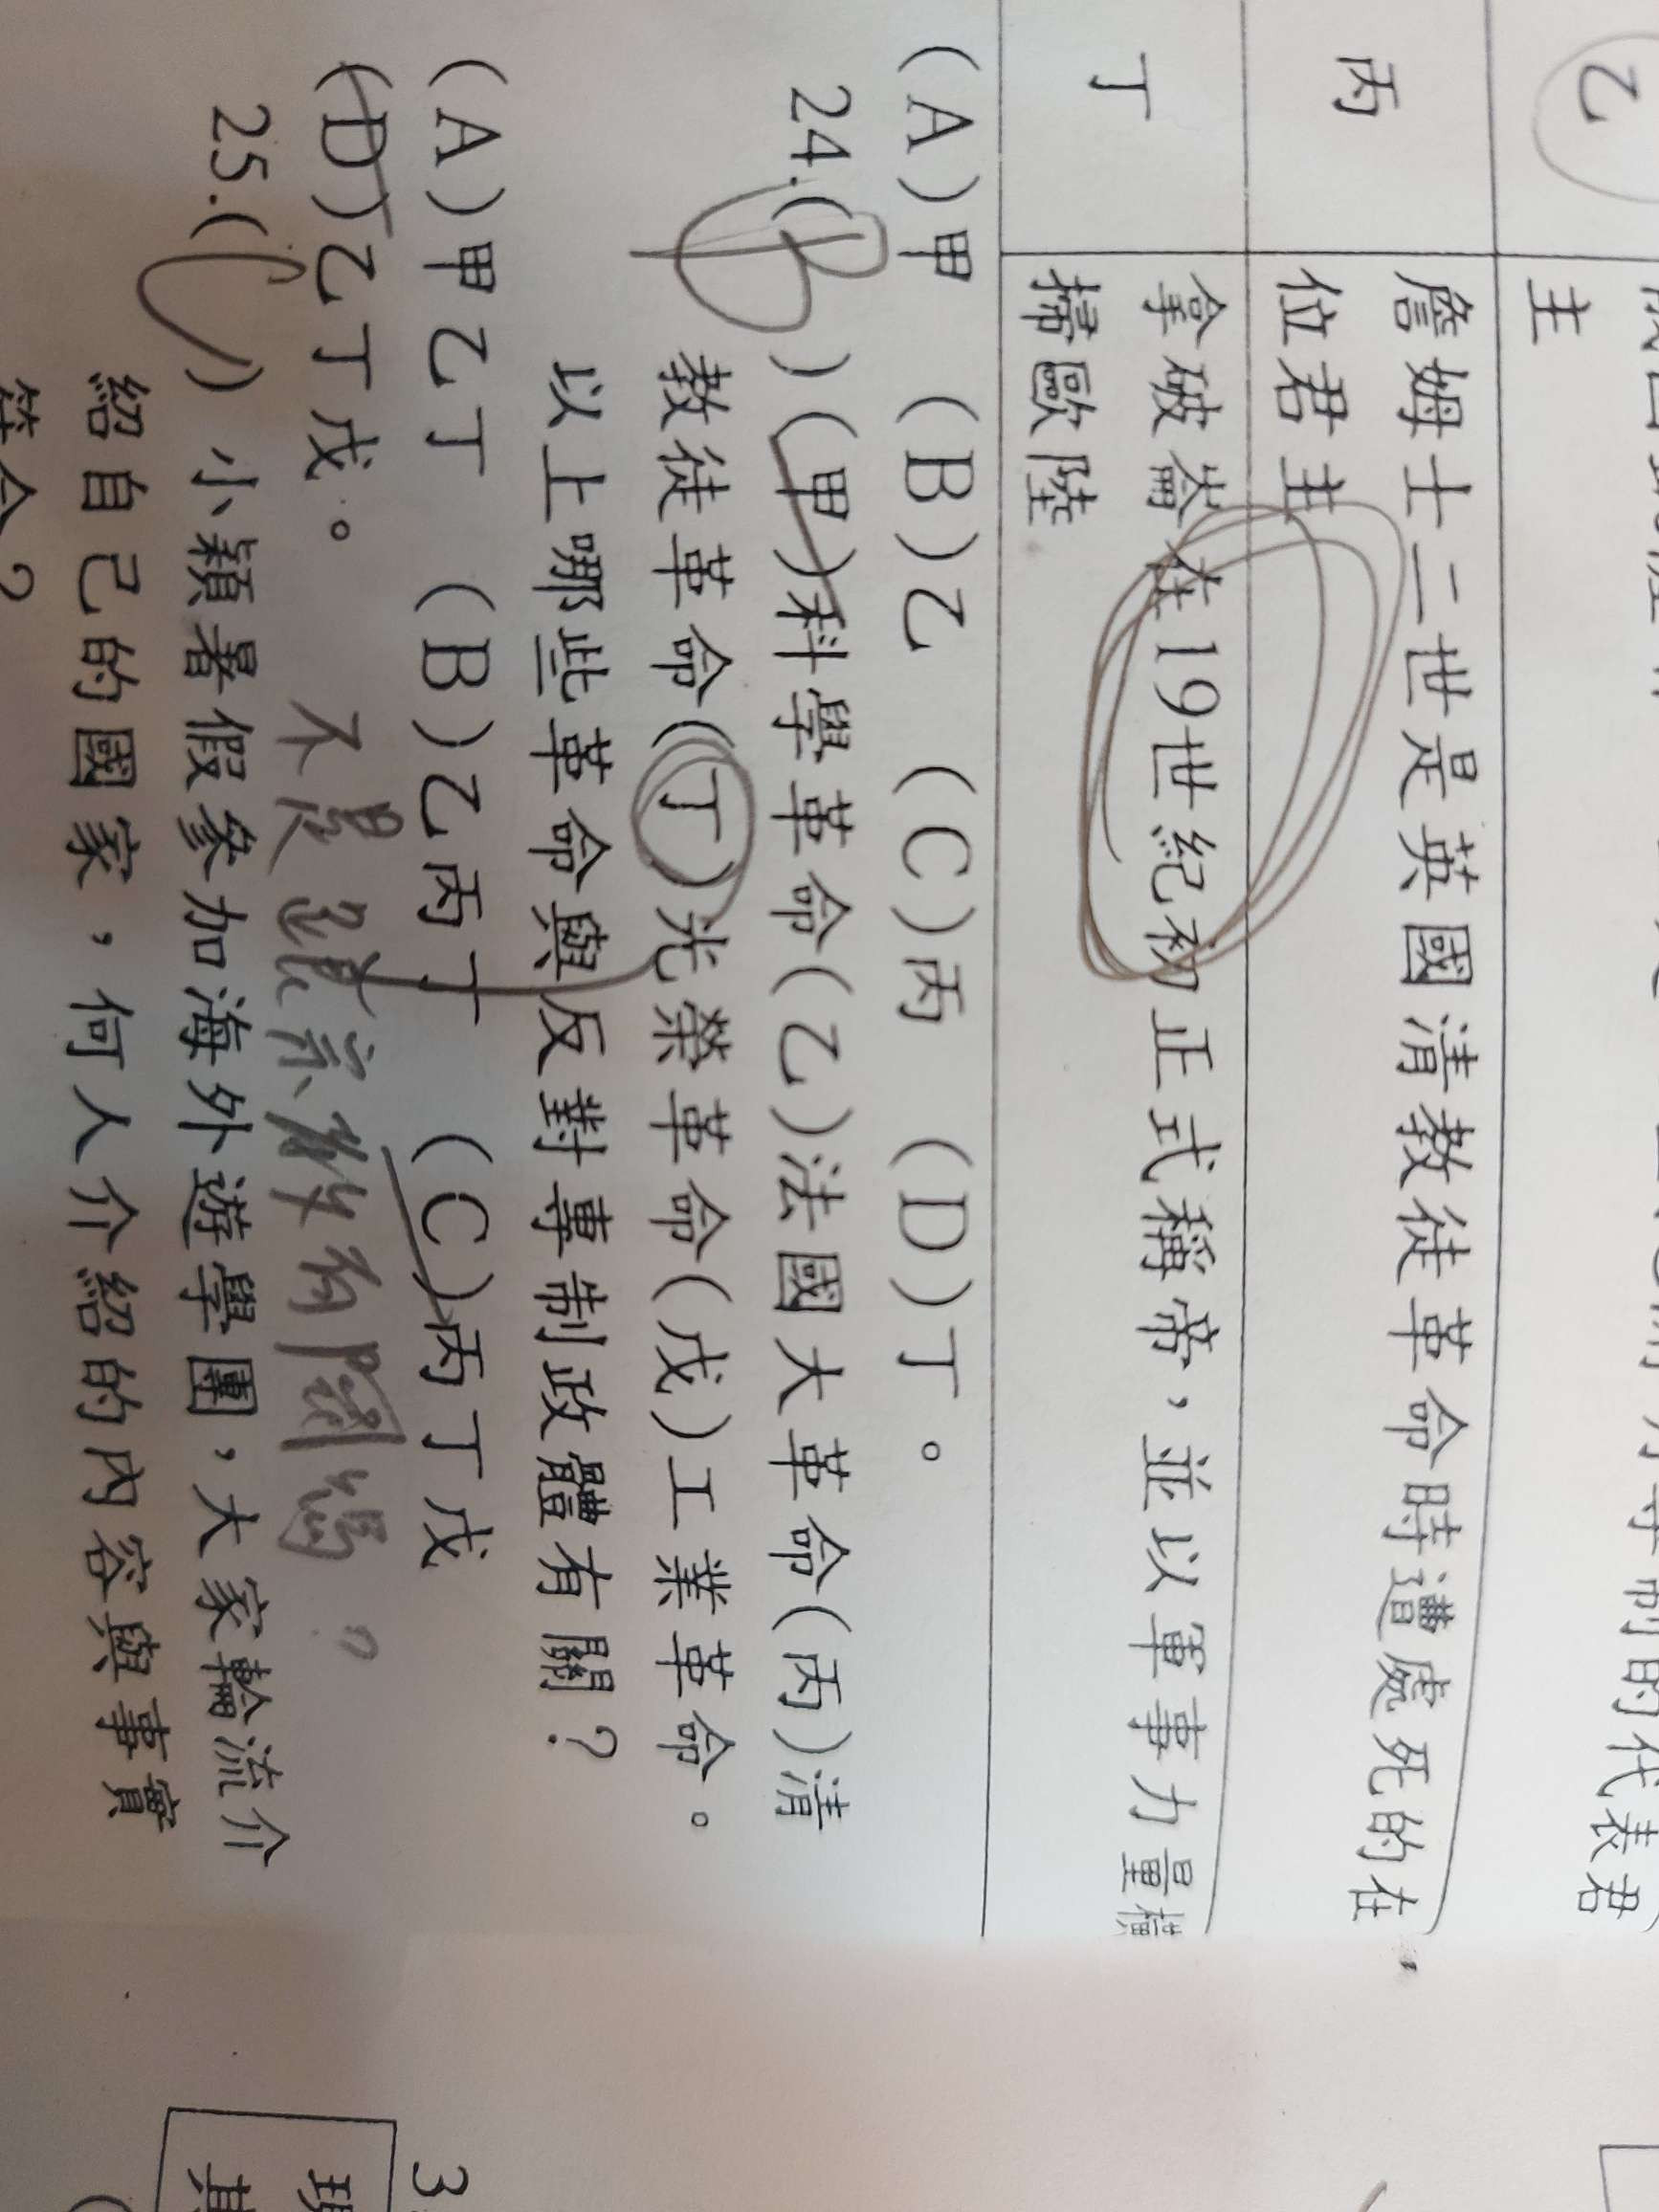 乙
主
丙
詹姆士二世是英國清教徒革命時遭處死的在
位君主
丁
拿破崙在19世紀初正式稱帝，並以軍事力量橫
掃歐陸
(A)甲 (B)乙 (C)丙 (D)丁。
24.(B)(甲)科學革命(乙)法國大革命(丙)清
教徒革命(丁)光榮革命(戊)工業革命。
以上哪些革命與反對專制政體有關？
(A)甲乙丁 (B)乙丙丁 (C)丙丁戊
(D)乙丁戊。
不是跟宗教有關嗎。
25.( )小穎暑假參加海外遊學團，大家輪流介
紹自己的國家，何人介紹的內容與事實
符合？
3